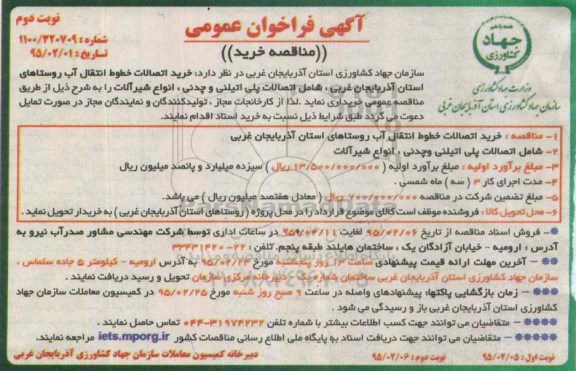 آگهی فراخوان عمومی
((مناقصه خرید))
نوبت دوم
شماره : ۱۱۰۰/۳۲۰۷۰۹
تاریخ : ۹۵/۰۲/۰۱
جهاد
کشاورزی
وزارت جهاد کشاورزی
سازمان جهاد کشاورزی استان آذربایجان غربی
سازمان جهاد کشاورزی استان آذربایجان غربی در نظر دارد، خرید اتصالات خطوط انتقال آب روستاهای
استان آذربایجان غربی ، شامل اتصالات پلی اتیلنی و چدنی ، انواع شیرآلات را به شرح ذیل از طریق
مناقصه عمومی خریداری نماید .لذا از کارخانجات مجاز ، تولیدکنندگان و نمایندگان مجاز در صورت تمایل
دعوت می گردد طبق شرایط ذیل نسبت به خرید اسناد اقدام نمایند.
۱- مناقصه : خرید اتصالات خطوط انتقال آب روستاهای استان آذربایجان غربی
۲- شامل اتصالات پلی اتیلنی وچدنی ، انواع شیرآلات
۳- مبلغ برآورد اولیه : مبلغ برآورد اولیه ( ۱۳/۵۰۰/۰۰۰/۰۰۰ ریال ) سیزده میلیارد و پانصد میلیون ریال
۴- مدت اجرای کار ۳ ( سه ) ماه شمسی .
۵- مبلغ تضمین شرکت در مناقصه ۷۰۰/۰۰۰/۰۰۰ ریال ( معادل هفتصد میلیون ریال ) می باشد.
۶- محل تحویل کالا : فروشنده موظف است کالای موضوع قرارداد را در محل پروژه ( روستاهای استان آذربایجان غربی ) به خریدار تحویل نماید.
* – فروش اسناد مناقصه از تاریخ ۹۵/۰۲/۰۶ لغایت ۹۵/۰۲/۱۱ در ساعات اداری توسط شرکت مهندسی مشاور صدرآب نیرو به
آدرس : ارومیه – خیابان آزادگان یک ، ساختمان هایلند طبقه پنجم. تلفن : ۲۲-۳۳۳۳۱۴۲۰
** – آخرین مهلت ارائه قیمت پیشنهادی ساعت ۱۳ روز پنجشنبه مورخ ۹۵/۰۲/۲۳ به آدرس ارومیه – کیلومتر ۵ جاده سلماس ،
سازمان جهاد کشاورزی استان آذربایجان غربی ساختمان شماره دبیرخانه مرکزی سازمان تحویل و رسید دریافت نمایند .
*** – زمان بازگشایی پاکتها: پیشنهادهای واصله در ساعت ۹ صبح روز شنبه مورخ ۹۵/۰۲/۲۵ در کمیسیون معاملات سازمان جهاد
کشاورزی استان آذربایجان غربی باز و رسیدگی می شود .
**** – متقاضیان می توانند جهت کسب اطلاعات بیشتر با شماره تلفن ۰۴۴-۳۱۹۷۴۲۳۲ تماس حاصل نمایند .
***** – متقاضیان می توانند جهت دریافت اسناد به پایگاه ملی اطلاع رسانی مناقصات کشور iets.mporg.ir مراجعه نمایند.
نوبت اول: ۹۵/۰۲/۰۵
نوبت دوم: ۹۵/۰۲/۰۶
دبیرخانه کمیسیون معاملات سازمان جهاد کشاورزی آذربایجان غربی